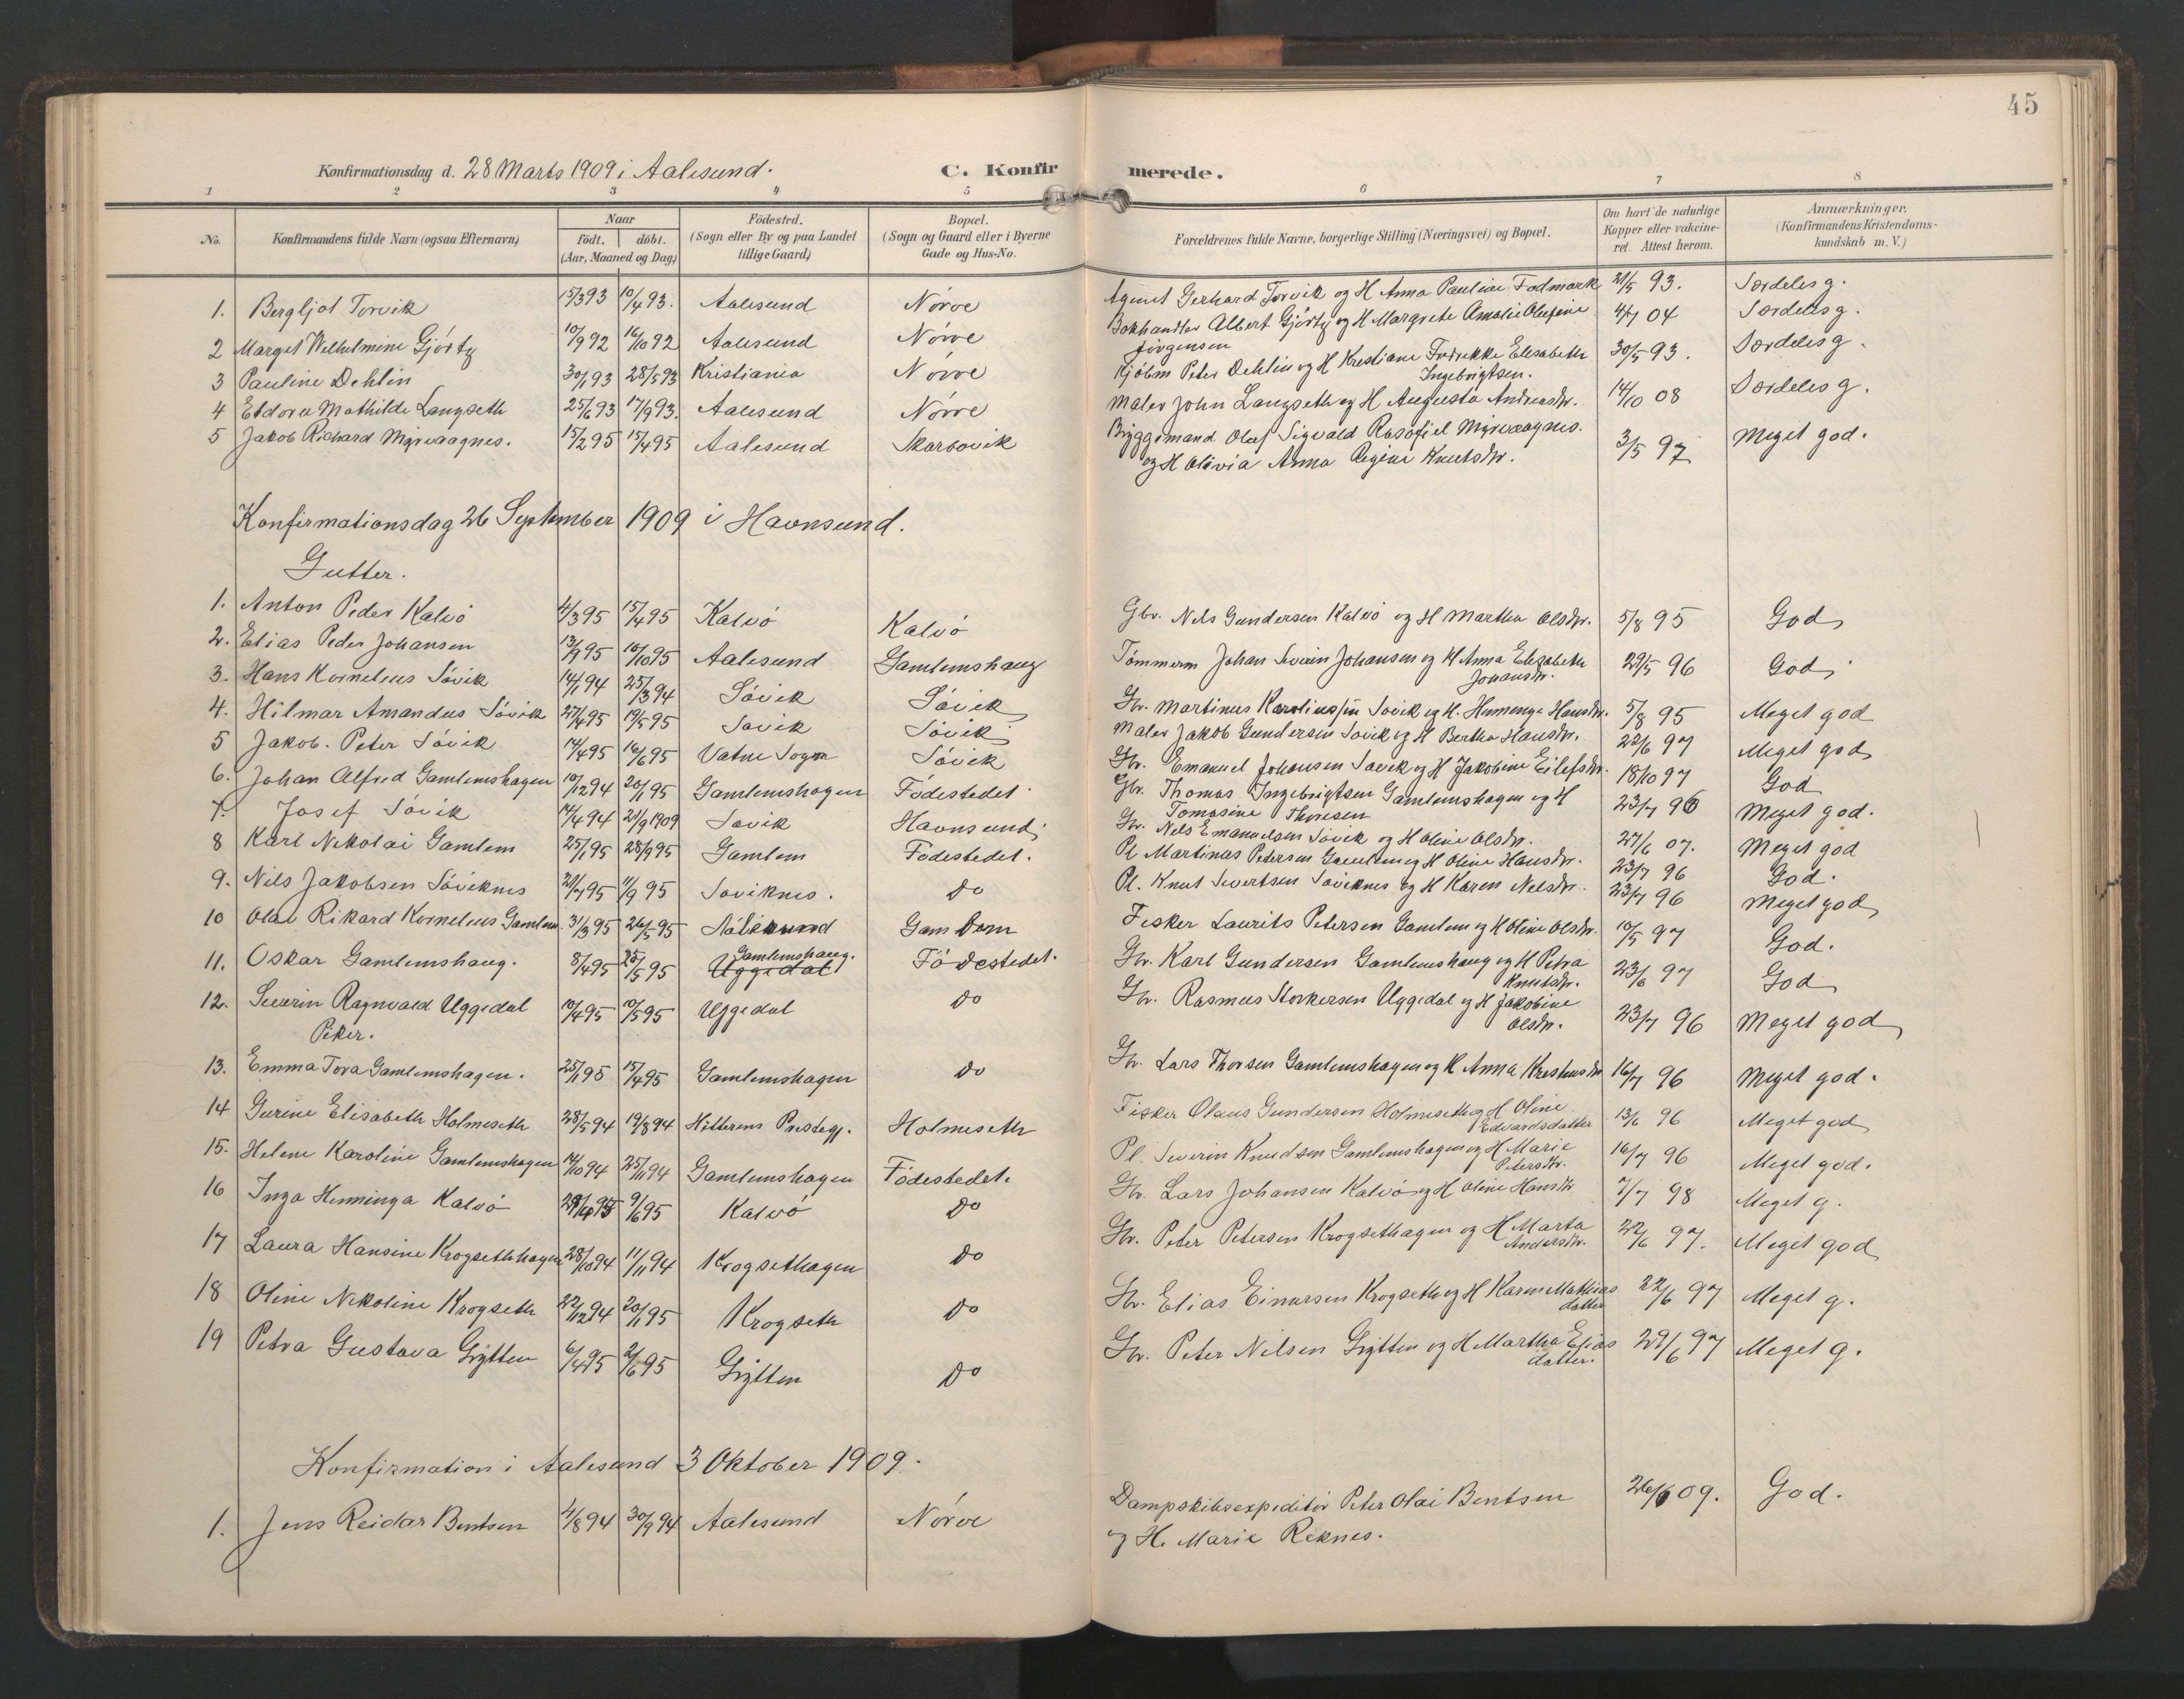 45
Konfirmationsdag d. 28 Marts 1909 i Aalesund. C. Konfirmerede.
1 2 3 4 5 6 7 8
No. Konfirmandens fulde Navn (ogsaa Efternavn) Naar født. døbt. (Aar, Maaned og Dag) Fødested. (Sogn eller By og paa Landet tillige Gaard) Bopæl. (Sogn og Gaard eller i Byerne Gade og Hus-No. Forældrenes fulde Navne, borgerlige Stilling (Næringsvei) og Bopæl. Om havt de naturlige Kopper eller vakcineret. Attest herom. Anmærkninger. (Konfirmandens Kristendomskundskab m. V.)
1. Bergljot Torvik 15/3 93 10/4 93. Aalesund Nörve Agent Gerhard Torvik og H Anna Pauline Fodmark 21/5 93. Særdeles g.
2 Marget Wilhelmine Gjörtz 10/9 92 16/10 92 Aalesund Nörve Bokhandler Albert Gjörtz og H Margrete Amalie Olufine Jörgensen 4/7 04 Særdeles g.
3 Pauline Dehlin 30/1 93 28/5 93 Kristiania Nörve Kjöbm Peter Dehlin og H Kristiane Fredrikke Elisabeth Ingebrigtsen. 30/5 93. Særdeles g.
4 Eldora Mathilde Langseth 25/6 93 17/9 93. Aalesund Nörve Maler John Langseth og H Augusta Andreasdtr. 14/10 08 Særdeles g.
5 Jakob Richard Myrvaagnes. 15/2 95 15/4 95 Aalesund Skarbovik Byggemand Oluf Sigvald Rasofiel Myrvaagnes. og H Olivia Anna Regine Knutsdtr. 3/5 97 Meget god.
Konfirmationsdag 26 September 1909 i Havnsund.
Gutter.
1. Anton Peder Kalvö 4/3 95 15/4 95 Kalvö Kalvö Gbr. Nels Gundersen Kalvö og H Martha Olsdtr. 5/8 95 God
2. Elias Peder Johansen 13/9 95 10/10 95 Aalesund Gamlemshaug Tömmerm Johan Severin Johansen og H Anna Elisabeth Johansdtr. 29/5 96 God
3. Hans Kornelius Sövik 14/1 94 25/3 94 Sövik Sövik Gbr. Martinus Karoliussen Sövik og H. Henmenge Hansdtr. 5/8 95 Meget god
4. Hilmar Amandus Sövik 27/4 95 19/5 95 Sovik Sövik Maler Jakob Gundersen Sovik og H Bertha Hansdtr. 22/6 97 Meget god
5 Jakob. Peter Sövik 14/4 95 16/6 95 Vatne Sogn Sövik Gbr. Emanuel Johansen Sövik og H Jakobine Eilefsdtr. 18/10 97 God
6. Johan Alfred Gamlemshagen 10/12 94 20/1 95 Gamlemshagen Födestedet. Gbr. Thomas Ingebrigtsen Gamlemshagen og H Tomasine Thoresen 23/7 96 Meget god.
7. Josef Sövik 14/4 94 21/9 1909 Sovik Havnsund Gbr. Nels Emanuelsen Sövik og H Oline Olsdtr. 27/6 07. Meget god
8 Karl Nikolai Gamlem 25/1 95 28/9 95 Gamlem Födestedet. Pl Martinus Petersen Gamlem og H Oline Hansdtr. 23/7 96 God.
9. Nils Jakobsen Söviknes 21/7 95 11/9 95 Soviknes. Do Pl. Knut Severtsen Söviknes og H Karen Nelsdtr. 23/7 96 Meget god
10 Olai Rikard Kornelius Gamlem. 31/3 95 26/5 95 Aalesund Gamlem Fisker Laurits Petersen Gamlem og H Oline Olsdtr. 10/5 97 God.
11. Oskar Gamlemshaug. 8/4 95 25/5 95 Uggedal Gamlemshaug. Födestedet. Gbr. Karl Gundersen Gamlemshaug og H Petra Knutsdtr. 23/6 97 God
12. Severin Ragnvald Uggedal 10/4 95 10/5 95 Uggedal Do Gbr. Rasmus Storkersen Uggedal og H Jakobine Olsdtr. 23/7 96 Meget god
Piker.
13. Emma Tora Gamlemshagen. 25/1 95 15/4 95 Gamlemshagen Do Gbr. Lars Thorsen Gamlemshagen og H Anna Krestensdtr 16/7 96 Meget god.
14 Gurine Elisabeth Holmeseth 28/5 94 19/8 94 Hitterens Prestegj. Holmeseth Fisker Olaus Gundersen Holmeseth og H Oline Edvardsdatter 13/6 96 Meget god
15. Helene Karoline Gamlemshagen 14/10 94 25/11 94 Gamlemshagen Födestedet. Pl. Severin Knudsen Gamlemshagen og H Marie Petersdtr. 16/7 96 Meget god.
16 Inga Henninga Kalvö 9/6 95 Kalvö Do Gbr. Lars Johansen Kalvö og H Oline Hansdtr 7/7 98 Meget g.
17 Laura Hansine Krogsethhagen 28/10 94 11/11 94 Krogsethagen Do Gbr. Peter Petersen Krogsethagen og H Marta Andersdtr. 22/6 97. Meget god
18 Oline Nikoline Krogseth 22/12 94 20/1 95 Krogseth Do Gbr. Elias Einarsen Krogseth og H Karen Mathias datter 22/6 97 Meget g.
19 Petra Gustava Grytten 6/4 95 2/6 95 Grytten Do Gbr. Peter Nilsen Grytten og H Martha Elias datter. 22/6 97 Meget g.
Konfirmation i Aalesund 3 Oktober 1909.
1. Jens Reidar Bentsen 4/8 94 30/9 94 Aalesund Nörve Dampskibsexpeditör Peter Olai Bentsen og H. Marie Reknes. 26/6 09. God.